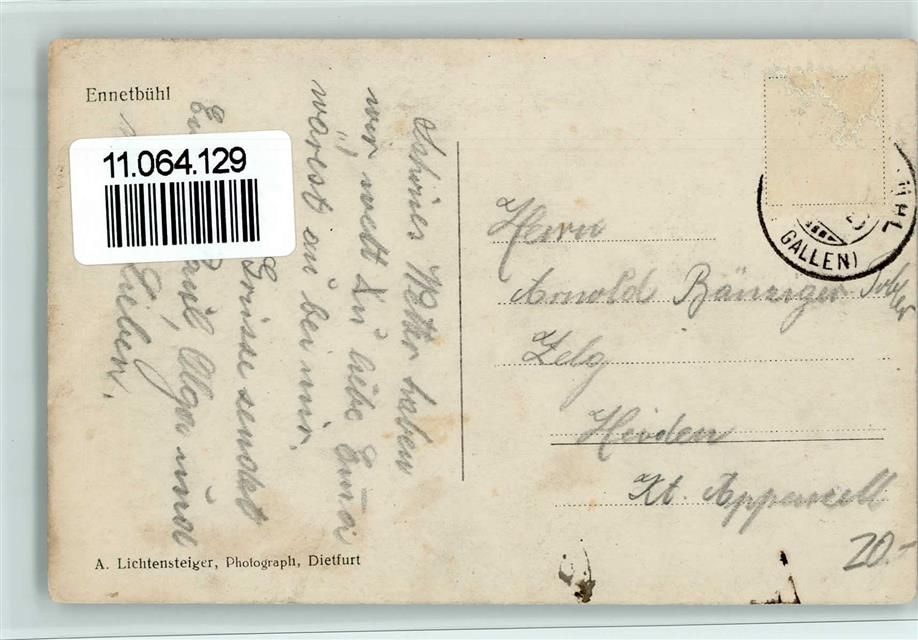 Ennetbühl
11.064.129
Schönes Wetter haben
wir, wett du liebe Emmi
wärest au bei mir.
Grüsse sendet
Paul, Olga und
Lieben.
GALLEN)
Herrn
Arnold Bänziger Tobler
Zelg
Heiden
Kt. Appenzell
20.-
A. Lichtensteiger, Photograph, Dietfurt